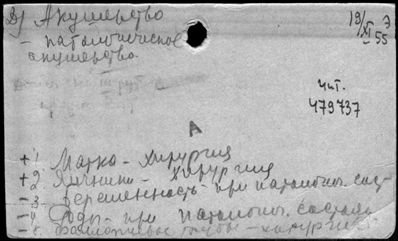 В) Акушерство
19/XI 55 Э
– патологическое
акушерство
чит.
479737
А
+1. Матка – хирургия
+2. Яичники – хирургия
–3. Беременность – при патолог. сост
–4. Роды – при патологич. состоян
–5. Фаллопиевы трубы – хирургия